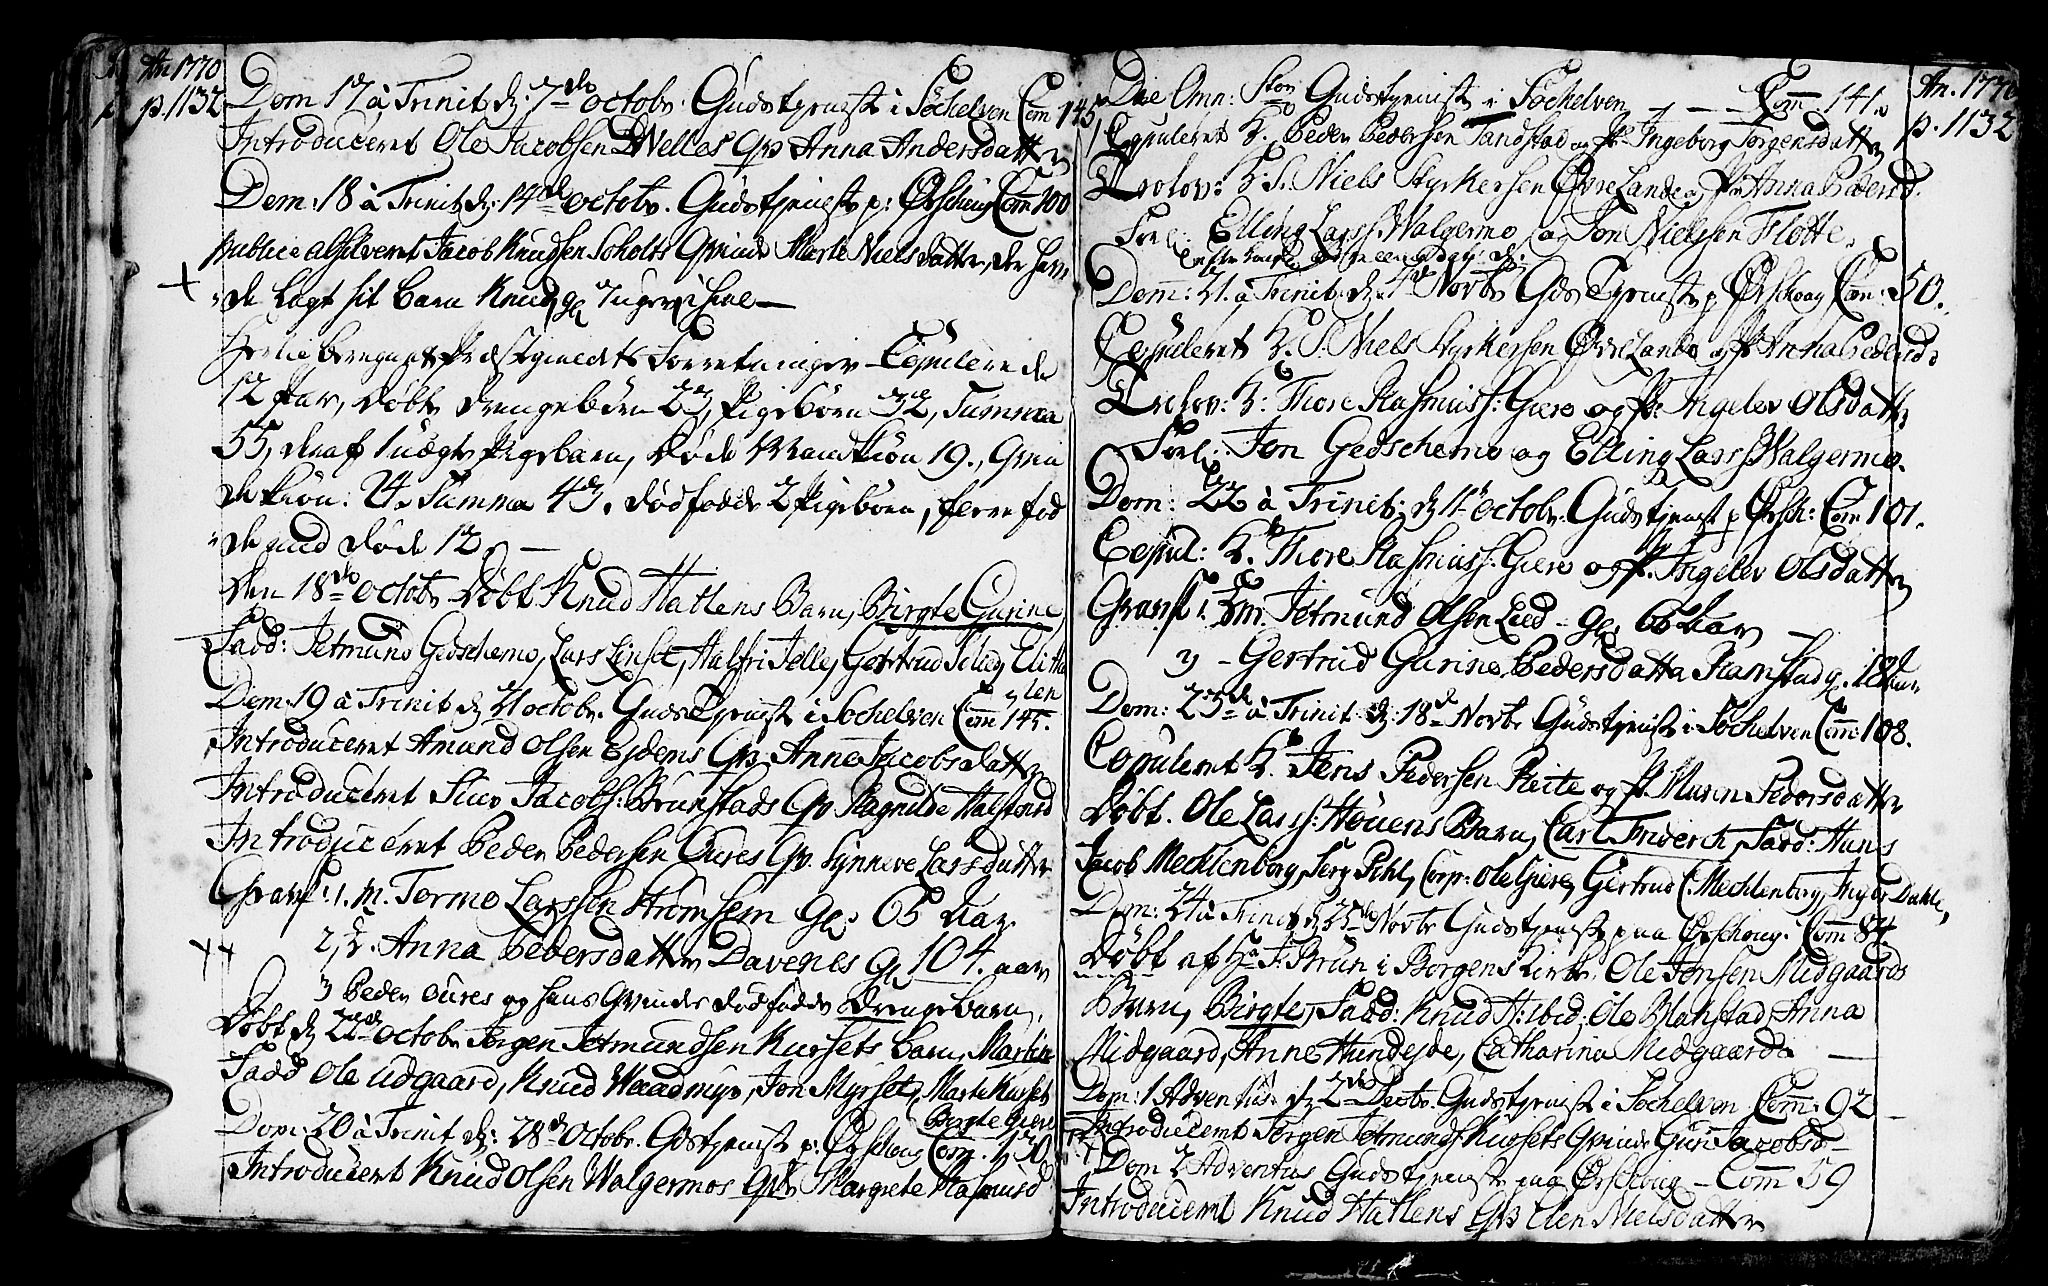 An 1770
p. 1132
Dom 17 à Trinit d: 7de octobr. Gudstjeniste i Söchelven Com 145
Introduceret Ole Jacobsen Welles Qvs Anna Andersdatter
Dom: 18 à Trinit d: 14de octobr. Gudstjeniste p: Ørschoug Com 100
publice absolveret Jacob Knudsen Soholts Qvinde Marte Nielsdatter, der hav
de lagt sit barn Knud,
Copulerede
12 Par, döbte Drengebörn 23, Pigebörn 32, Summa
55, deraf 1 uægte Pigebarn, döde Mandkiön 19., Qvin
dekiön. 24. Summa 43. dödfödde 2 Pigebörn, flere fød
de end döde 12
Den 18de octobr döbt Knud Hatlens Barn, Birgte Gurine,
Fadd: Jetmund Giöschemo, Lars Linset, Halfri Jelle, Gertrud
Dom: 19 à Trinit d 21 octobr. Gudstjenist i Söchelven Com 145.
Introduceret Amund Olsen Ejdems Qvs Anne Jacobsdatter
Introduceret Siur Jacobs: Brunstads Qv Ragnilde Halstensd
Introduceret Peder Pedersen Oures Qv. Synneve Larsdatter
Gravf: 1. m. Tormo Larssen Strömsem gl: 65 aar
2, q. Anna Pedersdatter Davenes gl 104. aar
3 Peder Oures og hans Qvindes dödfödde Drengebarn,
Döbt d 22de octobr Jörgen Jetmundsen Kursets barn, Martin
Fadd Ole Udgaard, Knud Waadmyr, Jon Myrset, Marte Kurset
Birgte Giere
Dom: 20 à Trinit d: 28de octobr. Gdstjenist p: Ørschoug Com. 130
Introduceret Knud Olsen Walgermos Qvs Margrete Rasmusd
An. 1770
p. 1132
Die Omn: Gudstjenist i Söchelven Com: 141.
Copuleret K. Peder Pedersen Tandstad og P: Ingeborg Jørgensdatter
Trolov: K. S. Niels Styrkersen Øvre Lande og P: Anna Pedersd.
Forl: Elling Larss. Walgermo og Jon Nielsen Flotte.
Dom: 21. à Trinit: d: 4de Novbr Gdstjenist p Ørschoug Com: 50.
Copuleret K. S. Niels Styrkersen Øvre Lande og P: Anna Pedersd:
Trolov: K: Thore Rasmuss: Giere og P: Ingelev Olsdatter
Forl: Jon Giöschemo og Elling Larss. Walgermo.
Dom: 22 à Trinit: d 11te octobr. Gudstjenist p Ørsch: Com 101.
Copul: K. Thore Rasmuss: Giere og P. Ingelev Olsdatter
Gravf: 1. m. Jetmund Olsen Lied - gl. 66 aar
2 - Gertrud Gurine Pedersdatter Ramstad g. 18
Dom: 23de à Trinit: d 18de Novbr Gudstjenist i Söchelven Com: 108.
Copuleret K. Jens Pedersen Reite og P. Maren Pedersdatter
Döbt. Ole Larss: Höuens Barn, Carl Friderch, Fadd: Hans
Jacob Mechlenborg, Serg Pihl, Corp: Ole Giere, Gertrud C. Mechlenborg, Inger Dahle,
Dom: 24 à Trinit d 25de Novbr Gudstjenist paa Ørschoug. Com 84.
Döbt af Hr F: Brun i Borgens Kirke. Ole Jensen Midgaards
Barn, Birgte, Fadd: Knud H: ibid, Ole Blakstad, Anna
Midgaard, Anne Hundejde, Catharina Midgaard
Dom: 1 Adventus d 2de Decbr. Gudstjenist i Söchelven Com: 92
Introduceret Jørgen Jetmunds Kursets Qvinde Guri Jacobsd
Dom 2 Adventus Gudstjenist paa Ørschoug - Com 59
Introduceret Knud Hatlens Qvs Elen Nielsdatter